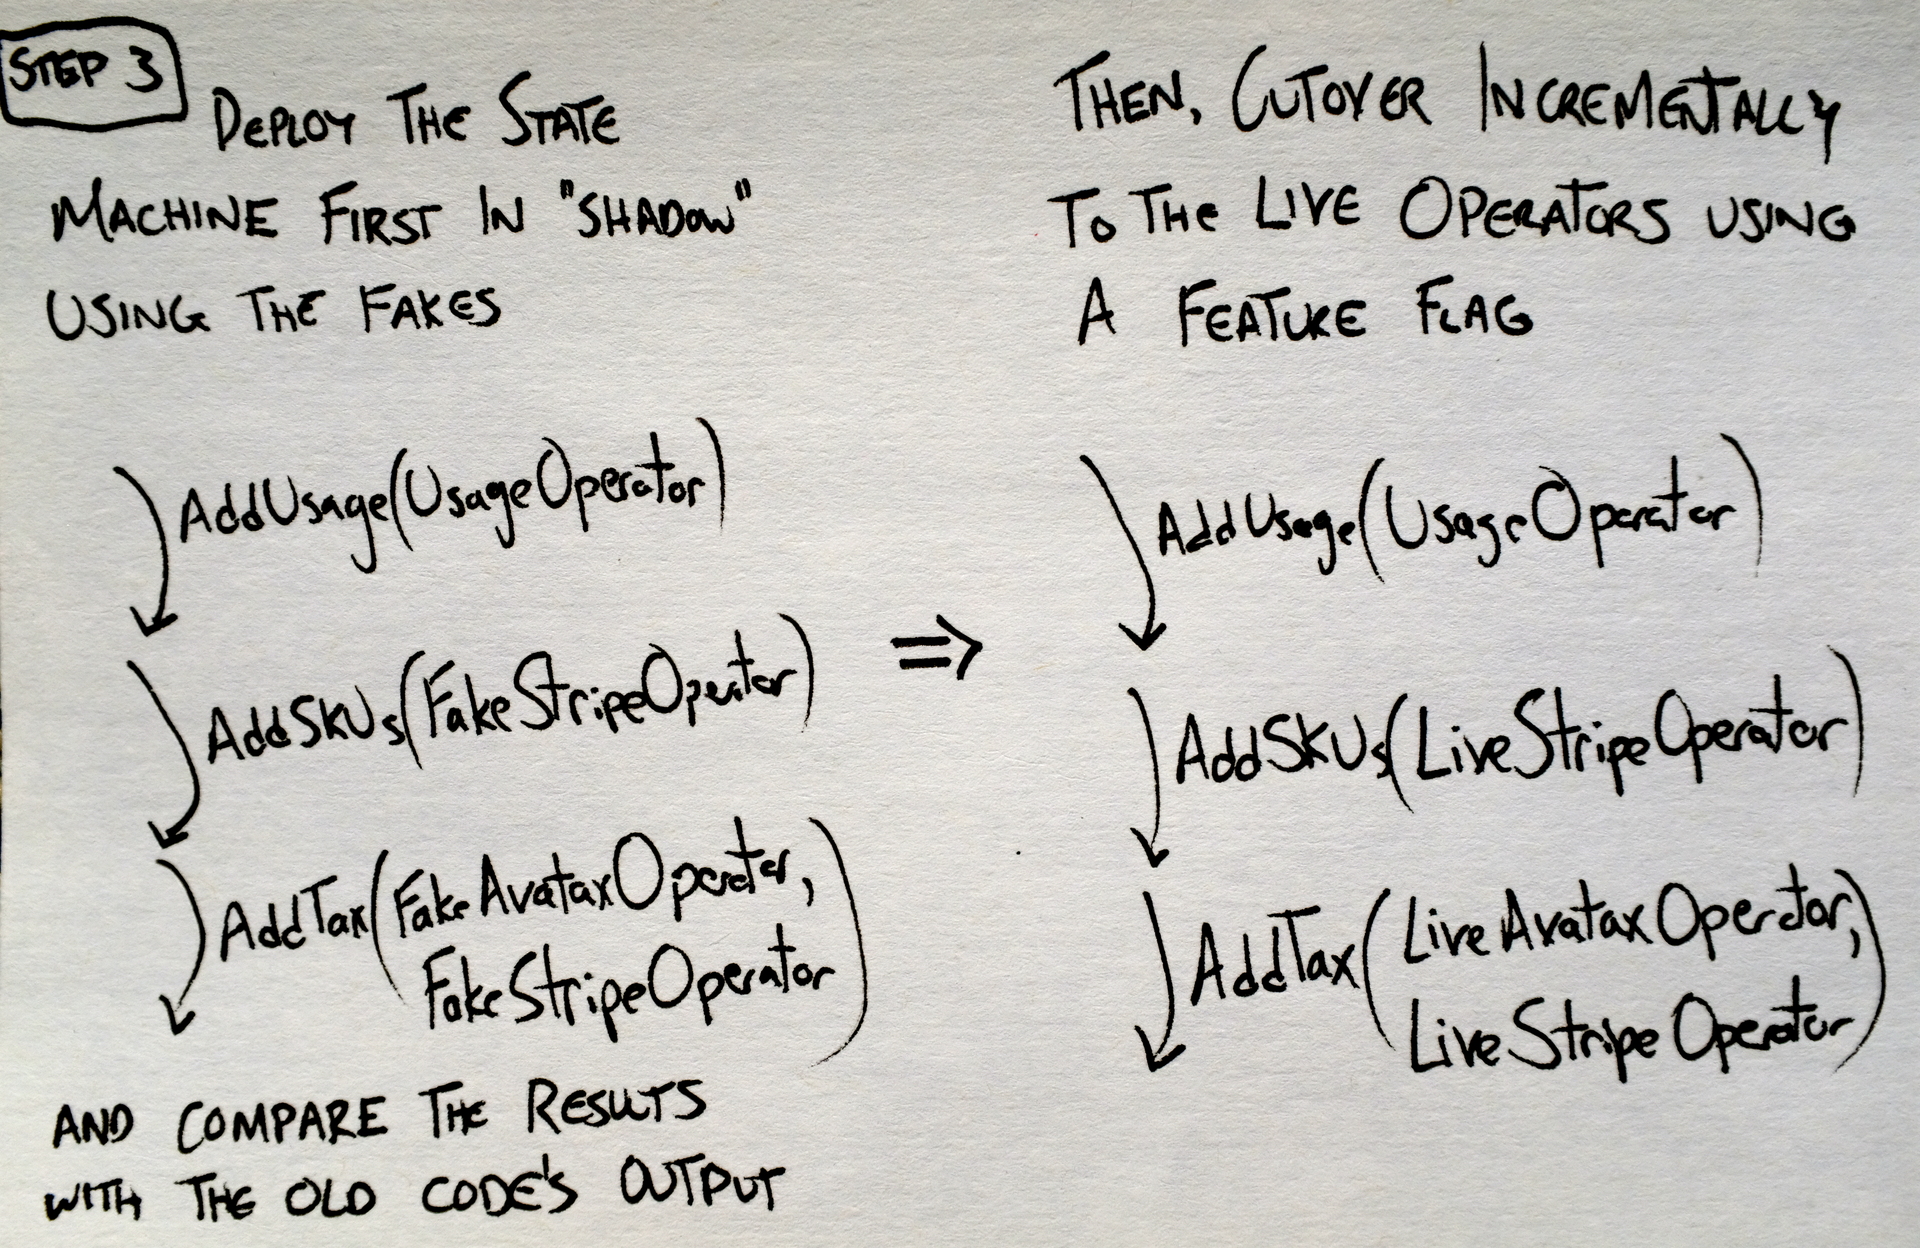 STEP 3
DEPLOY THE STATE
MACHINE FIRST IN "SHADOW"
USING THE FAKES
AddUsage(UsageOperator)
AddSKUs(FakeStripeOperator)
AddTax(FakeAvataxOperator,
FakeStripeOperator)
AND COMPARE THE RESULTS
WITH THE OLD CODE'S OUTPUT
⇒
THEN, CUTOVER INCREMENTALLY
TO THE LIVE OPERATORS USING
A FEATURE FLAG
AddUsage(UsageOperator)
AddSKUs(LiveStripeOperator)
AddTax(LiveAvataxOperator,
LiveStripeOperator)